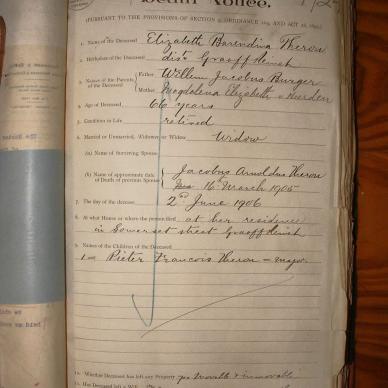 Death Notice.
(PURSUANT TO THE PROVISIONS OF SECTION 9, ORDINANCE 104, AND ACT
1. Name of the Deceased Elizabeth Barendina Theron
2. Birthplace of the Deceased dist. Graaff Reinet
3. Names of the Parents of the Deceased
Father Willem Jacobus Burger
Mother Magdalena Elizabeth v Heerden
4. Age of Deceased 66 years
5. Condition in Life retired
6. Married or Unmarried, Widower or Widow Widow
(a) Name of Surviving Spouse
(b) Name of approximate date of Death of previous Spouse
Jacobus Arnoldus Theron
16 March 1905
7. The day of the decease 2nd June 1906
8. At what House or where the person died at her residence
in Somerset street Graaff Reinet
9. Names of the Children of the Deceased
1 Pieter Francois Theron – major
10. Whether Deceased has left any Property yes movable & immovable
11. Has Deceased left a Will